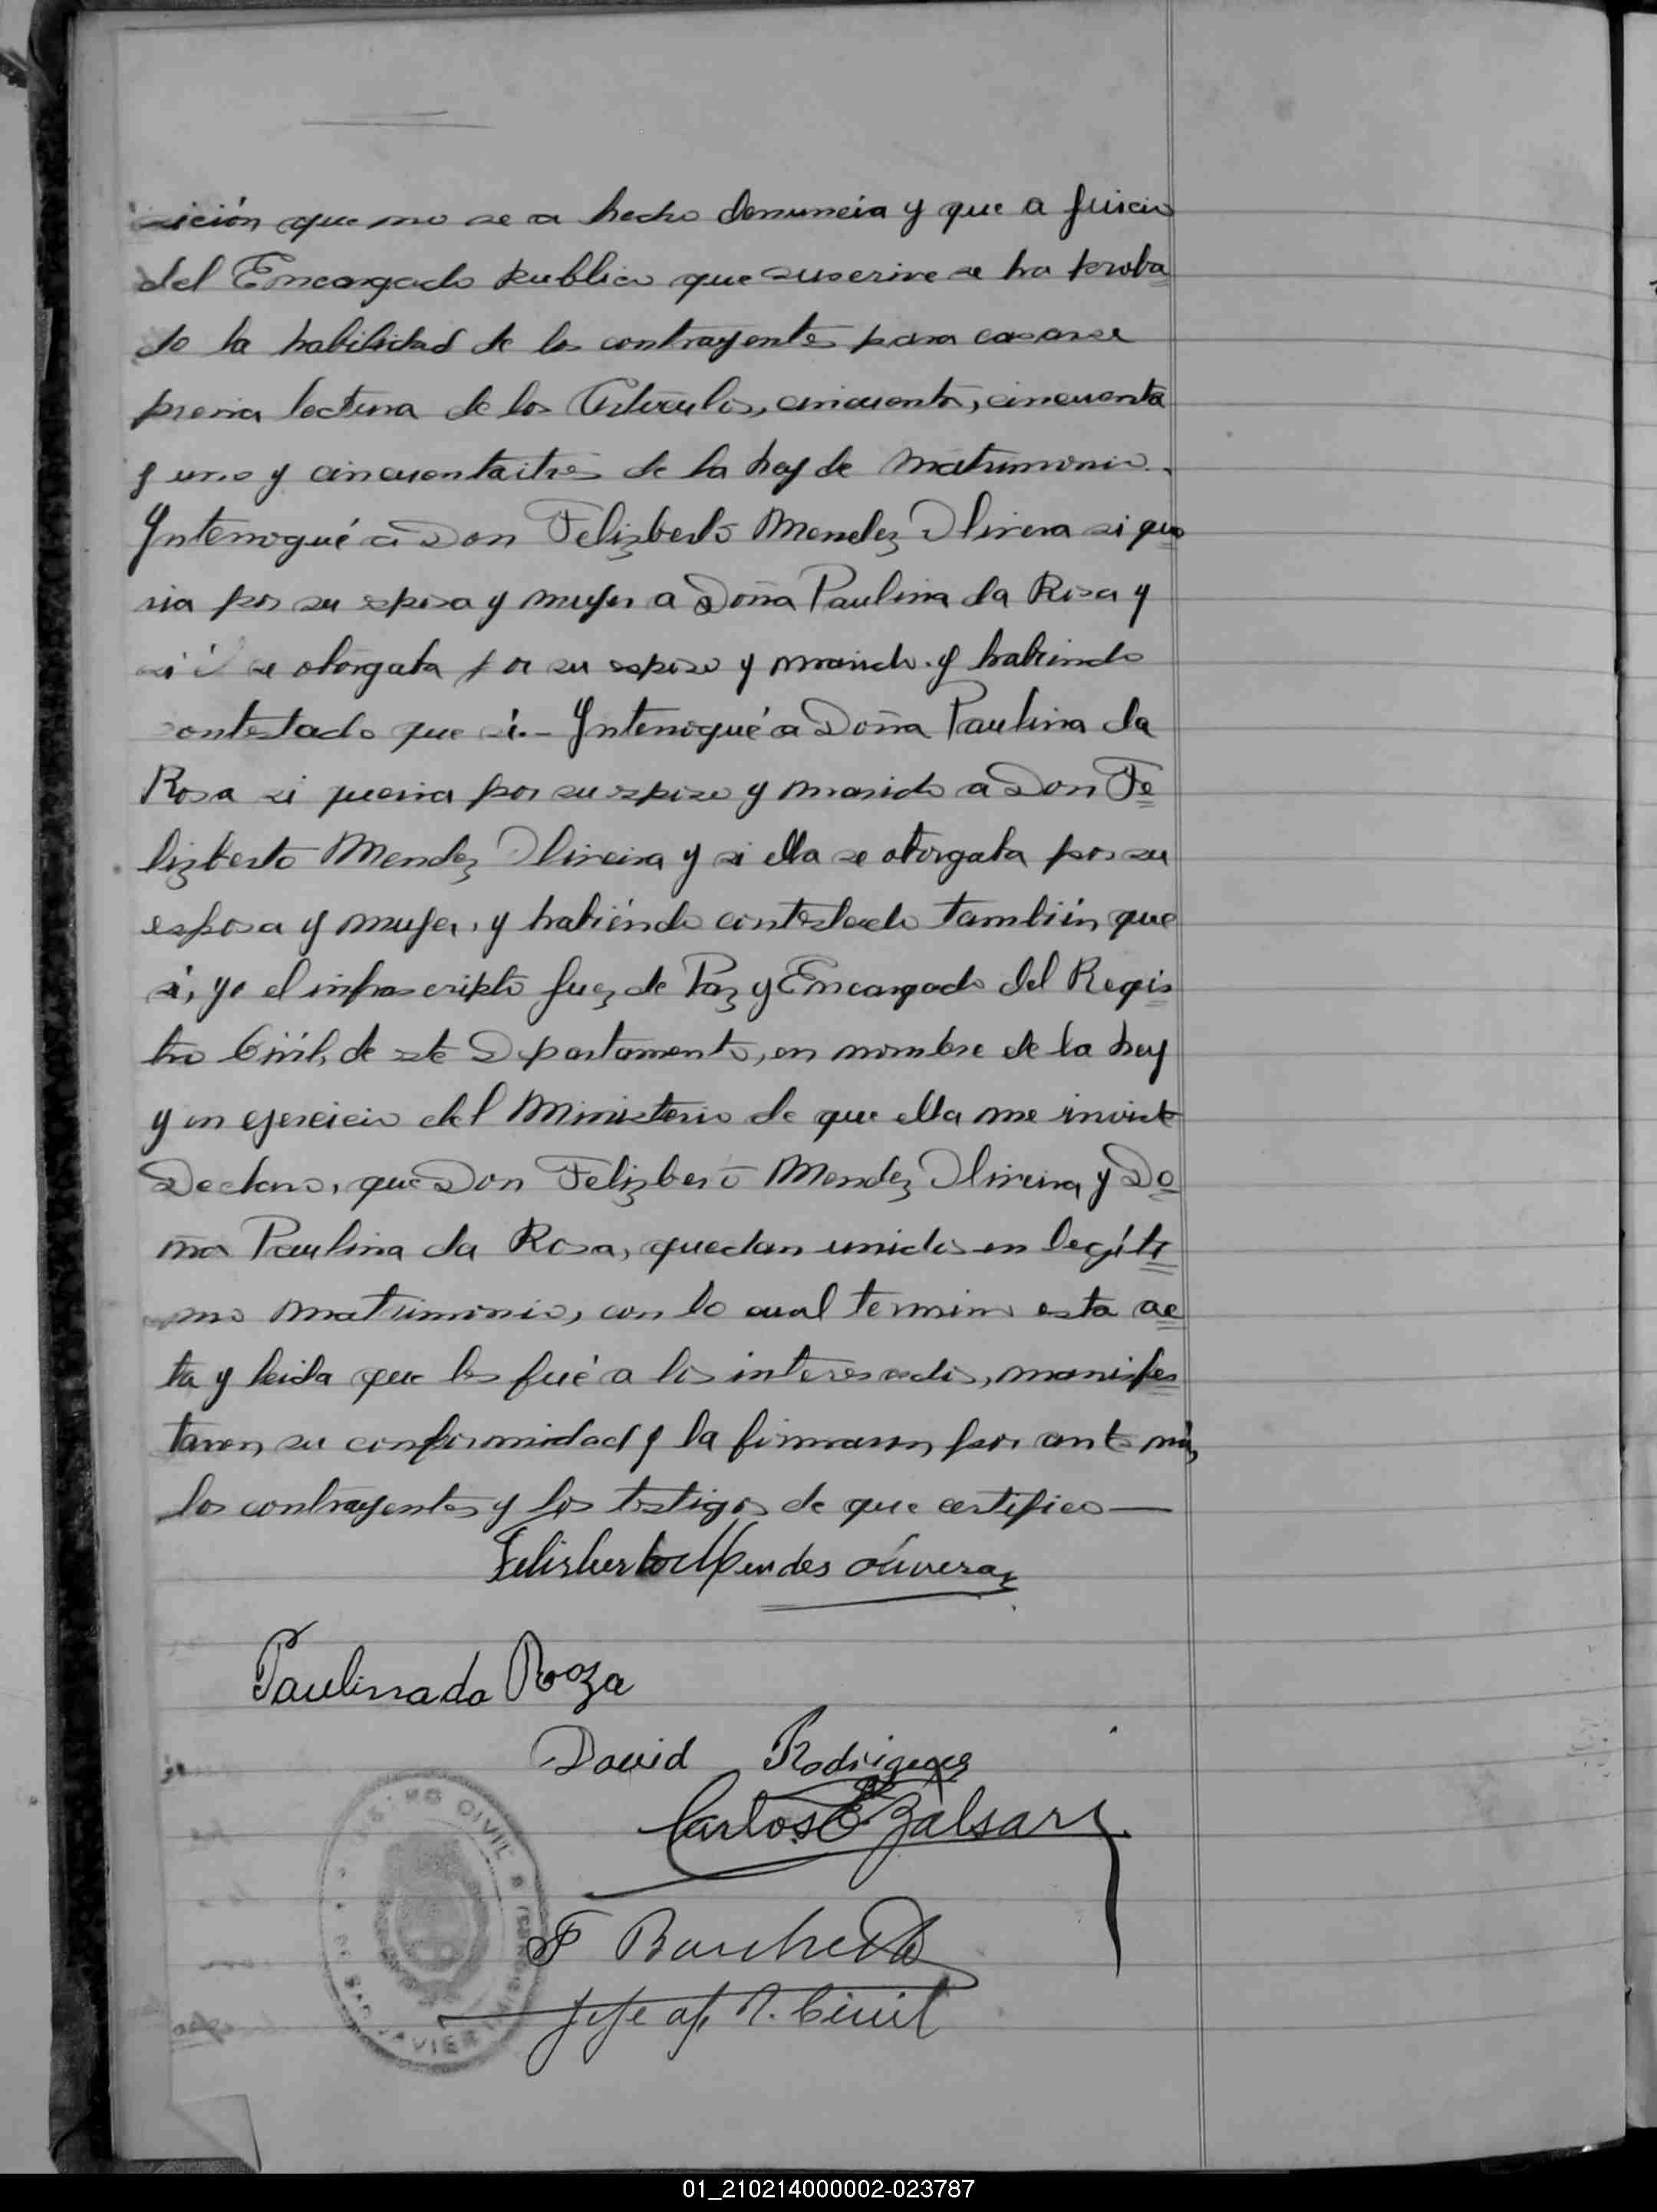 sición que no se a hecho denuncia y que a juicio
del Encargado publico que suscrive se ha proba
do la habilidad de los contrayentes para casarse
previa lectura de los Artículos, cincuenta, cincuenta
y uno y cincuentaitrés de la Ley de Matrimonio.
Ynterrogué a Don Felizberto Mendez Olivera si que
ria por su esposa y mujer a Doña Paulina da Rosa y
si él se otorgaba por su esposo y marido y habiendo
contestado que sí.- Ynterrogué a Doña Paulina da
Rosa si queria por su esposo y marido a Don Fe
lizberto Mendez Oliveira y si ella se otorgaba por su
esposa y mujer, y habiéndo contestado también que
sí, yo el infrascripto Juez de Paz y Encargado del Regis
tro Civil, de este Departamento, en nombre de la Ley
y en ejercicio del Ministerio de que ella me inviste
Declaro, que Don Felizberto Mendez Oliveira y Do
ña Paulina da Rosa, quedan unidos en legíti
mo matrimonio, con lo cual termino esta ac
ta y leida que les fué a los interesados, manifes
taron su conformidad y la firmaron por ante mí,
los contrayentes y los testigos de que certifico—
Felisberto Mendes olivera
Paulina da Roza
David Rodriguez
Carlos E Balsari
F
Jefe of. R. Civil
REGISTRO CIVIL
SAN JAVIER
01_210214000002-023787